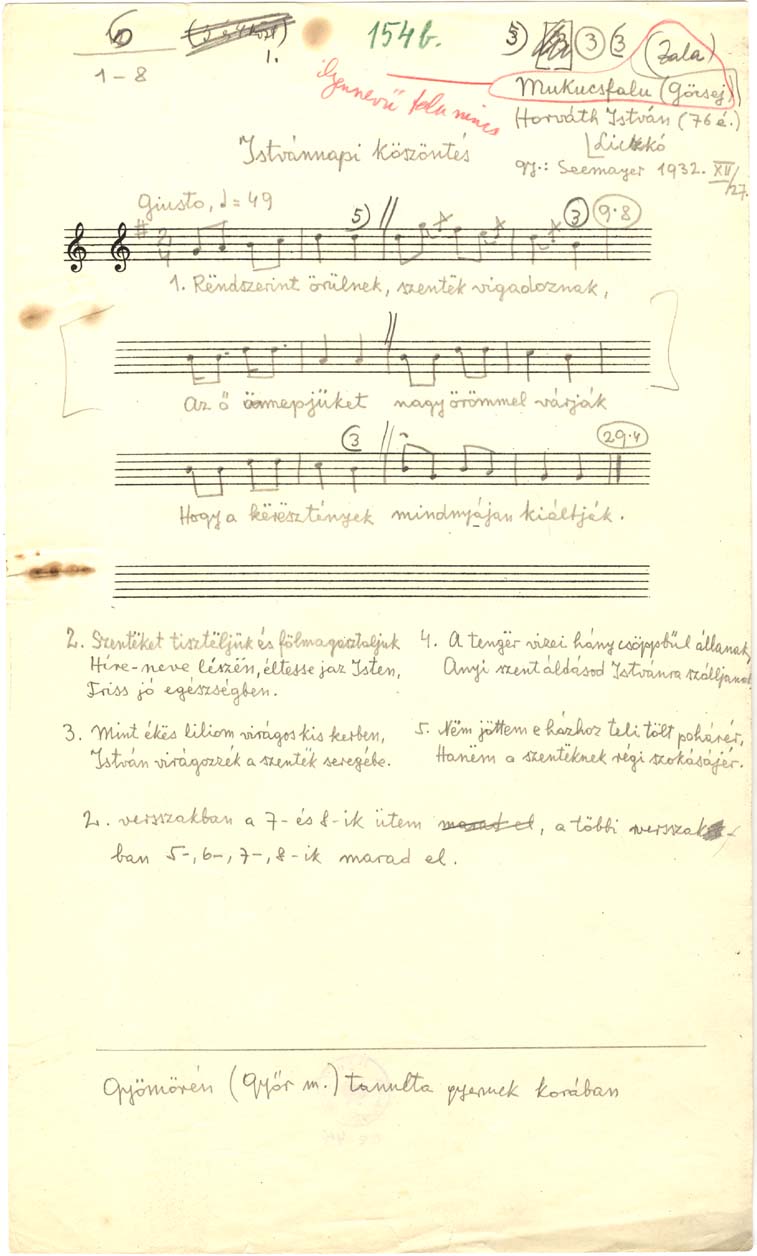 6
1 - 8
1.
154b.
5) 3 3 (Zala)
ilyennevű falu nincs
Mukucsfalu (Göcsej)
Horváth István (76 é.)
Istvánnapi köszöntés
gy.: Seemayer 1932. XII/27.
Giusto, ♩= 49
5) 3 9·8
1. Rëndszerint örülnek, szentëk vigadoznak,
Az ő ünnepjüket nagy örömmel várják
3 29·4
Hogy a kërësztények mindnyájan kiáltják.
2. Szentëket tisztëljük és fölmagasztaljuk
Híre-neve lészën, éltesse jaz Isten,
Friss jó egészségben.
3. Mint ékës liliom virágos kis kerben,
István virágozzék a szentëk seregébe.
4. A tengër vizei hány csöppbül állanak,
Anyi szent áldásod Istvánra szálljanak
5. Nëm jöttem e házhoz teli tölt pohárér,
Hanëm a szentëknek régi szokásájér.
2. versszakban a 7- és 8-ik ütem marad el, a többi versszak-
ban 5-, 6-, 7-, 8-ik marad el.
Gyömörén (Győr m.) tanulta gyermek korában